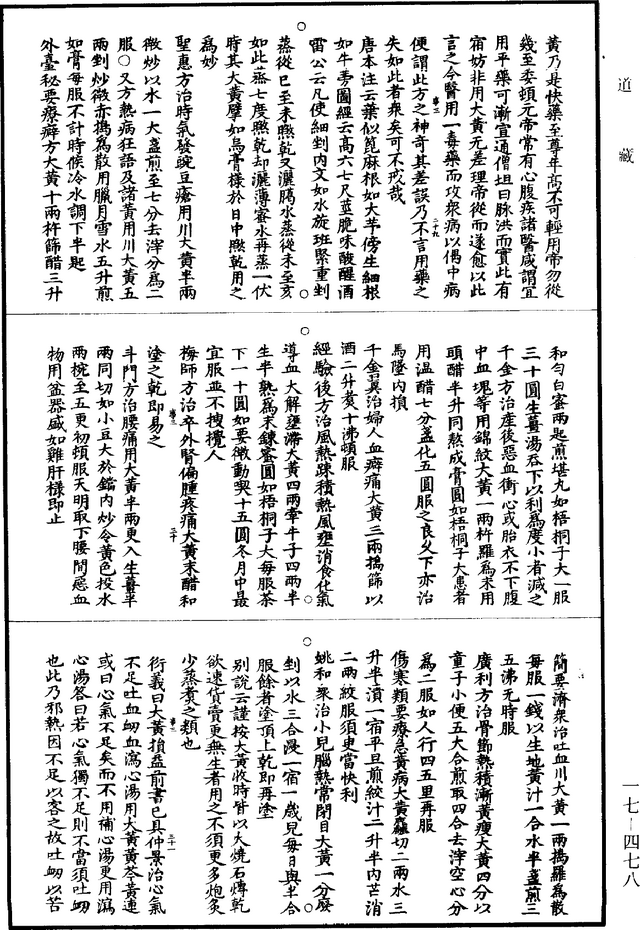 道藏
黃乃是快藥至尊年高不可輕用帝勿從
幾至委頓元帝常有心腹疾諸醫咸謂宜
用平藥可漸宣通僧坦曰脉洪而實此有
宿妨非用大黃無差理帝從而遂愈以此
言之今醫用一毒藥而攻衆病以偶中病
便謂此方之神奇其差誤乃不言用藥之
失如此者衆矣可不戒哉
唐本注云葉似蓖麻根如大芋傍生細根
如牛蒡圖經云高六七尺莖脆味酸醒酒
雷公云凡使細剉内文如水旋班緊重剉
蒸從巳至未㬠乾又灑臘水蒸從未至亥
如此蒸七度㬠乾却灑薄蜜水再蒸一伏
時其大黃擘如烏膏樣於日中㬠乾用之
爲妙
聖惠方治時氣發豌豆瘡用川大黃半兩
微炒以水一大盞煎至七分去滓分爲二
服○又方熱病狂語及諸黃用川大黃五
兩剉炒微赤擣爲散用臘月雪水五升煎
如膏每服不計時候冷水調下半匙
外臺秘要療癖方大黃十兩杵篩醋三升
和勻白蜜兩匙煎堪丸如梧桐子大一服
三十圓生薑湯吞下以利爲度小者減之
千金方治産後惡血衝心或胎衣不下腹
中血塊等用錦紋大黃一兩杵羅爲末用
頭醋半升同熬成膏圓如梧桐子大患者
用温醋七分盞化五圓服之良久下亦治
馬墜内損
千金翼治婦人血癖痛大黃三兩擣篩以
酒二升煑十沸頓服
經驗後方治風熱踈積熱風壅消食化氣
導血大解壅滯大黃四兩牽牛子四兩半
生半熟爲末鍊蜜圓如梧桐子大每服茶
下一十圓如要微動喫十五圓冬月中最
宜服並不搜攪人
梅師方治卒外腎偏腫疼痛大黃末醋和
塗之乾即易之
斗門方治腰痛用大黃半兩更入生薑半
兩同切如小豆大於鐺内炒令黃色投水
兩椀至五更初頓服天明取下腰間惡血
物用盆器盛如雞肝樣即止
簡要濟衆治吐血川大黃一兩擣羅爲散
每服一錢以生地黃汁一合水半盞煎三
五沸無時服
廣利方治骨節熱積漸黃瘦大黃四分以
童子小便五大合煎取四合去滓空心分
爲二服如人行四五里再服
傷寒類要療急黃病大黃麤切二兩水三
升半漬一宿平旦煎絞汁二升半内芒消
二兩絞服須臾當快利
姚和衆治小兒腦熱常閉目大黃一分麄
剉以水三合浸一宿一歲兒每日與半合
服餘者塗頂上乾即再塗
别說云謹按大黃收時皆以火燒石煿乾
欲速貨賣更無生者用之不須更多炮炙
少蒸煑之類也
衍義曰大黃損益前書已具仲景治心氣
不足吐血衂血瀉心湯用大黃黃芩黃連
或曰心氣不足矣而不用補心湯更用瀉
心湯荅曰若心氣獨不足則不當須吐衂
也此乃邪熱因不足以客之故吐衂以苦
一七—四七八